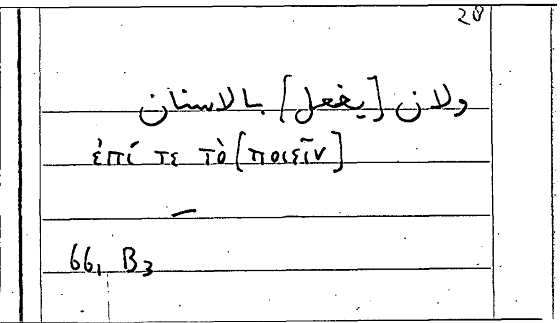 28
ولان [يفعل] بالاسنان
ἐπί τε τὸ [ποιεῖν]
—
66, B3